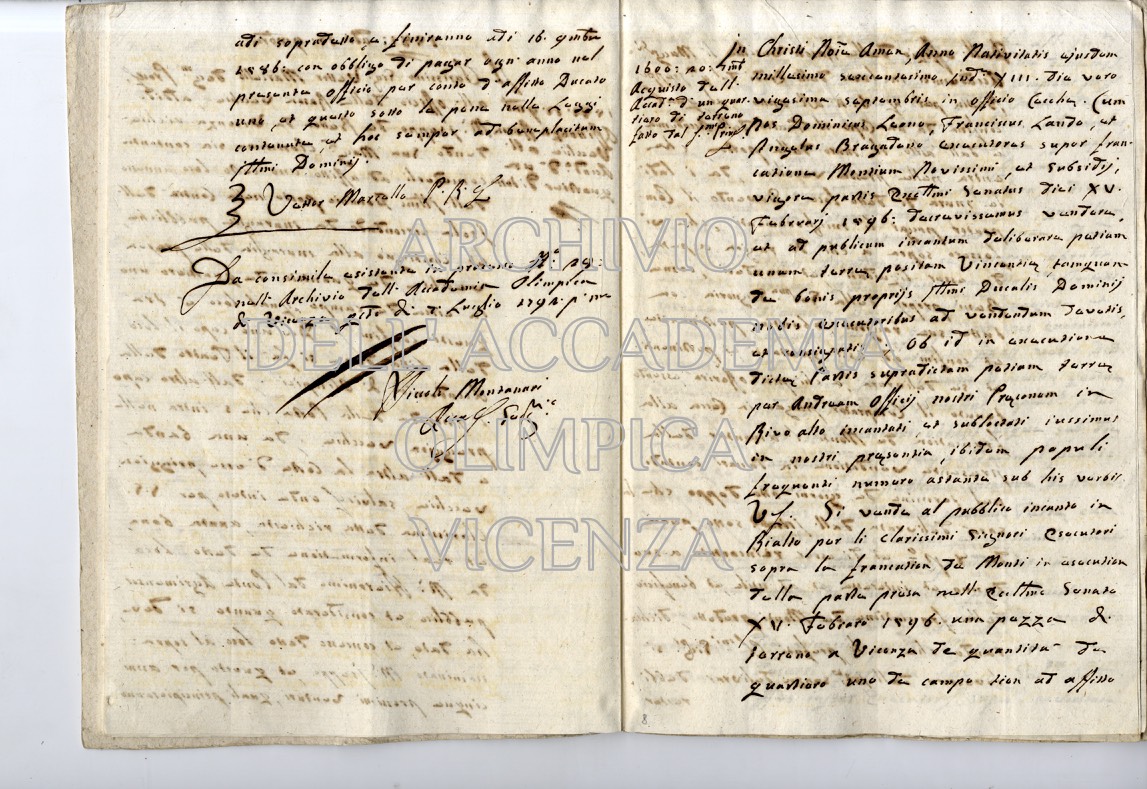 adi sopradetto, e finiranno adi 16. 9mbre
1586: con obbligo di pagar ogn' anno nel
presente officio per conto d'affitto Ducato
uno, et questo sotto la pena nella Leggi
contenuta, et hoc semper ad beneplacitum
Ill:mi Dominij
Vettor Marcello P. R.
Da consimile esistente in
nell' Archivio dell' Accademia Olimpica
di Vicenza Luglio 1792
Niccolò Montanari
1600: 20: 7mb
Acquisto dell'
Accad:a d' un quar
tiero di terreno
fatto dal
In Christi Noie Amen, Anno Nativitatis ejusdem
millesimo sexcentesimo Ind:e XIII. die vero
vigesima septembris in officio Cecche. Cum
Nos Dominicus Leono, Franciscus Lando, et
Angelus Bragadeno executores super fran
catione Montium Novissimi, et subsidij,
vigore partis Ecc:llmi Senatus diei XV.
Februarij 1596: decrevissemus vendere,
et ad publicum incantum deliberare petiam
unam terræ positam Vincentiæ, tamquam
de bonis proprijs Ill:mi Ducalis Dominij
nobis executoribus ad vendendum
et consignatis; Ob id in executione
dictæ Partis supradictam petiam terræ
per Andream Officij nostri Præconem in
Rivo alto incantari, et subhastari iussimus
in nostri præsentia, ibidem populi
frequenti numero astante sub his verbis
Vz. Si vende al pubblico incanto in
Rialto per li clarissimi Signori Esecutori
sopra la francation de Monti in esecution
della parte presa nell' Ecc:llmo Senato
XV. Febraro 1596. una pezza di
terreno a Vicenza de quantità de
quartiero uno de campo tien ad affitto
8.
ARCHIVIO
DELL'ACCADEMIA
OLIMPICA
VICENZA